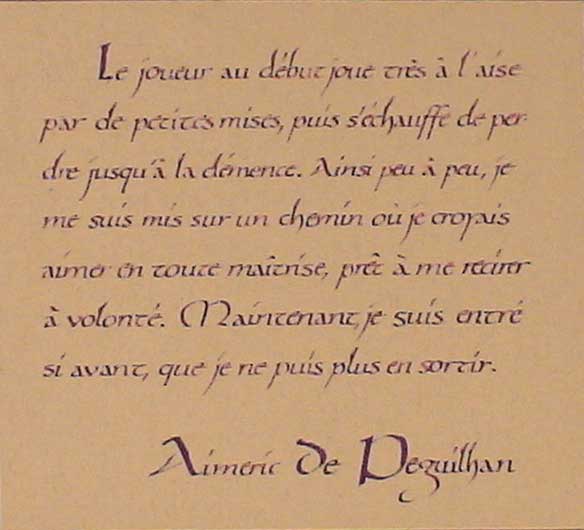 Le joueur au début joue très à l'aise
par de petites mises, puis s'échauffe de per-
dre jusqu'à la démence. Ainsi peu à peu, je
me suis mis sur un chemin où je croyais
aimer en toute maîtrise, prêt à me retirer
à volonté. Maintenant, je suis entré
si avant, que je ne puis plus en sortir.
Aimeric de Peguilhan